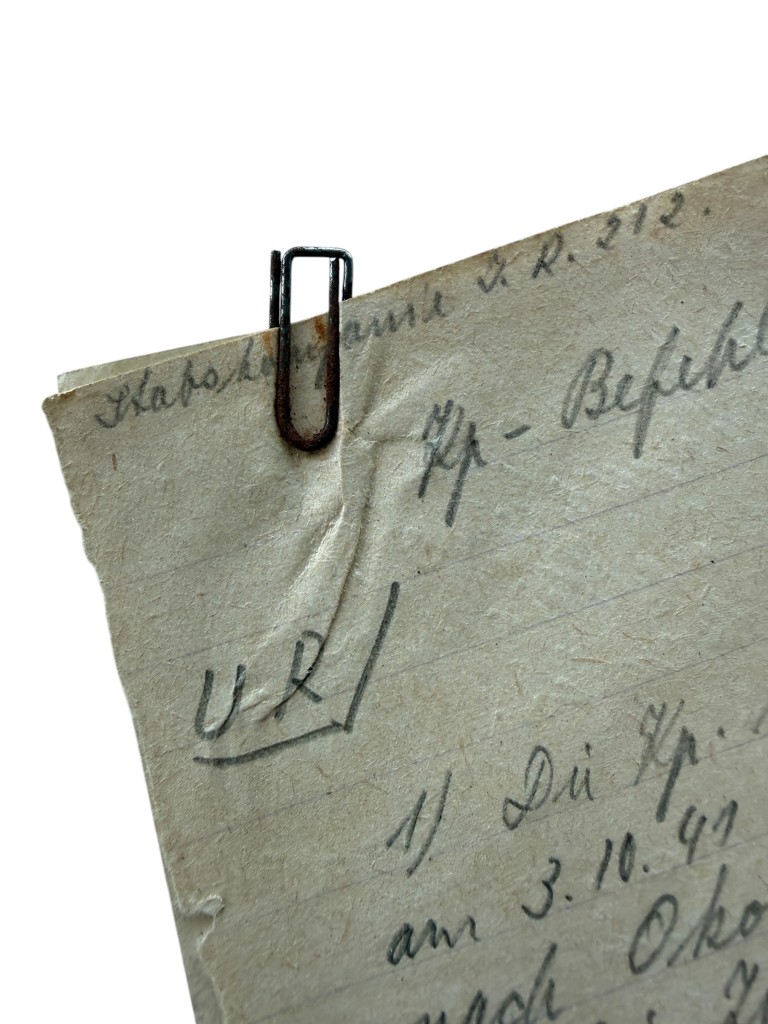 Stabskompanie I. R. 212.
Kp - Befehl
UR
1) Die Kp.
am 3.10.41
nach Oko